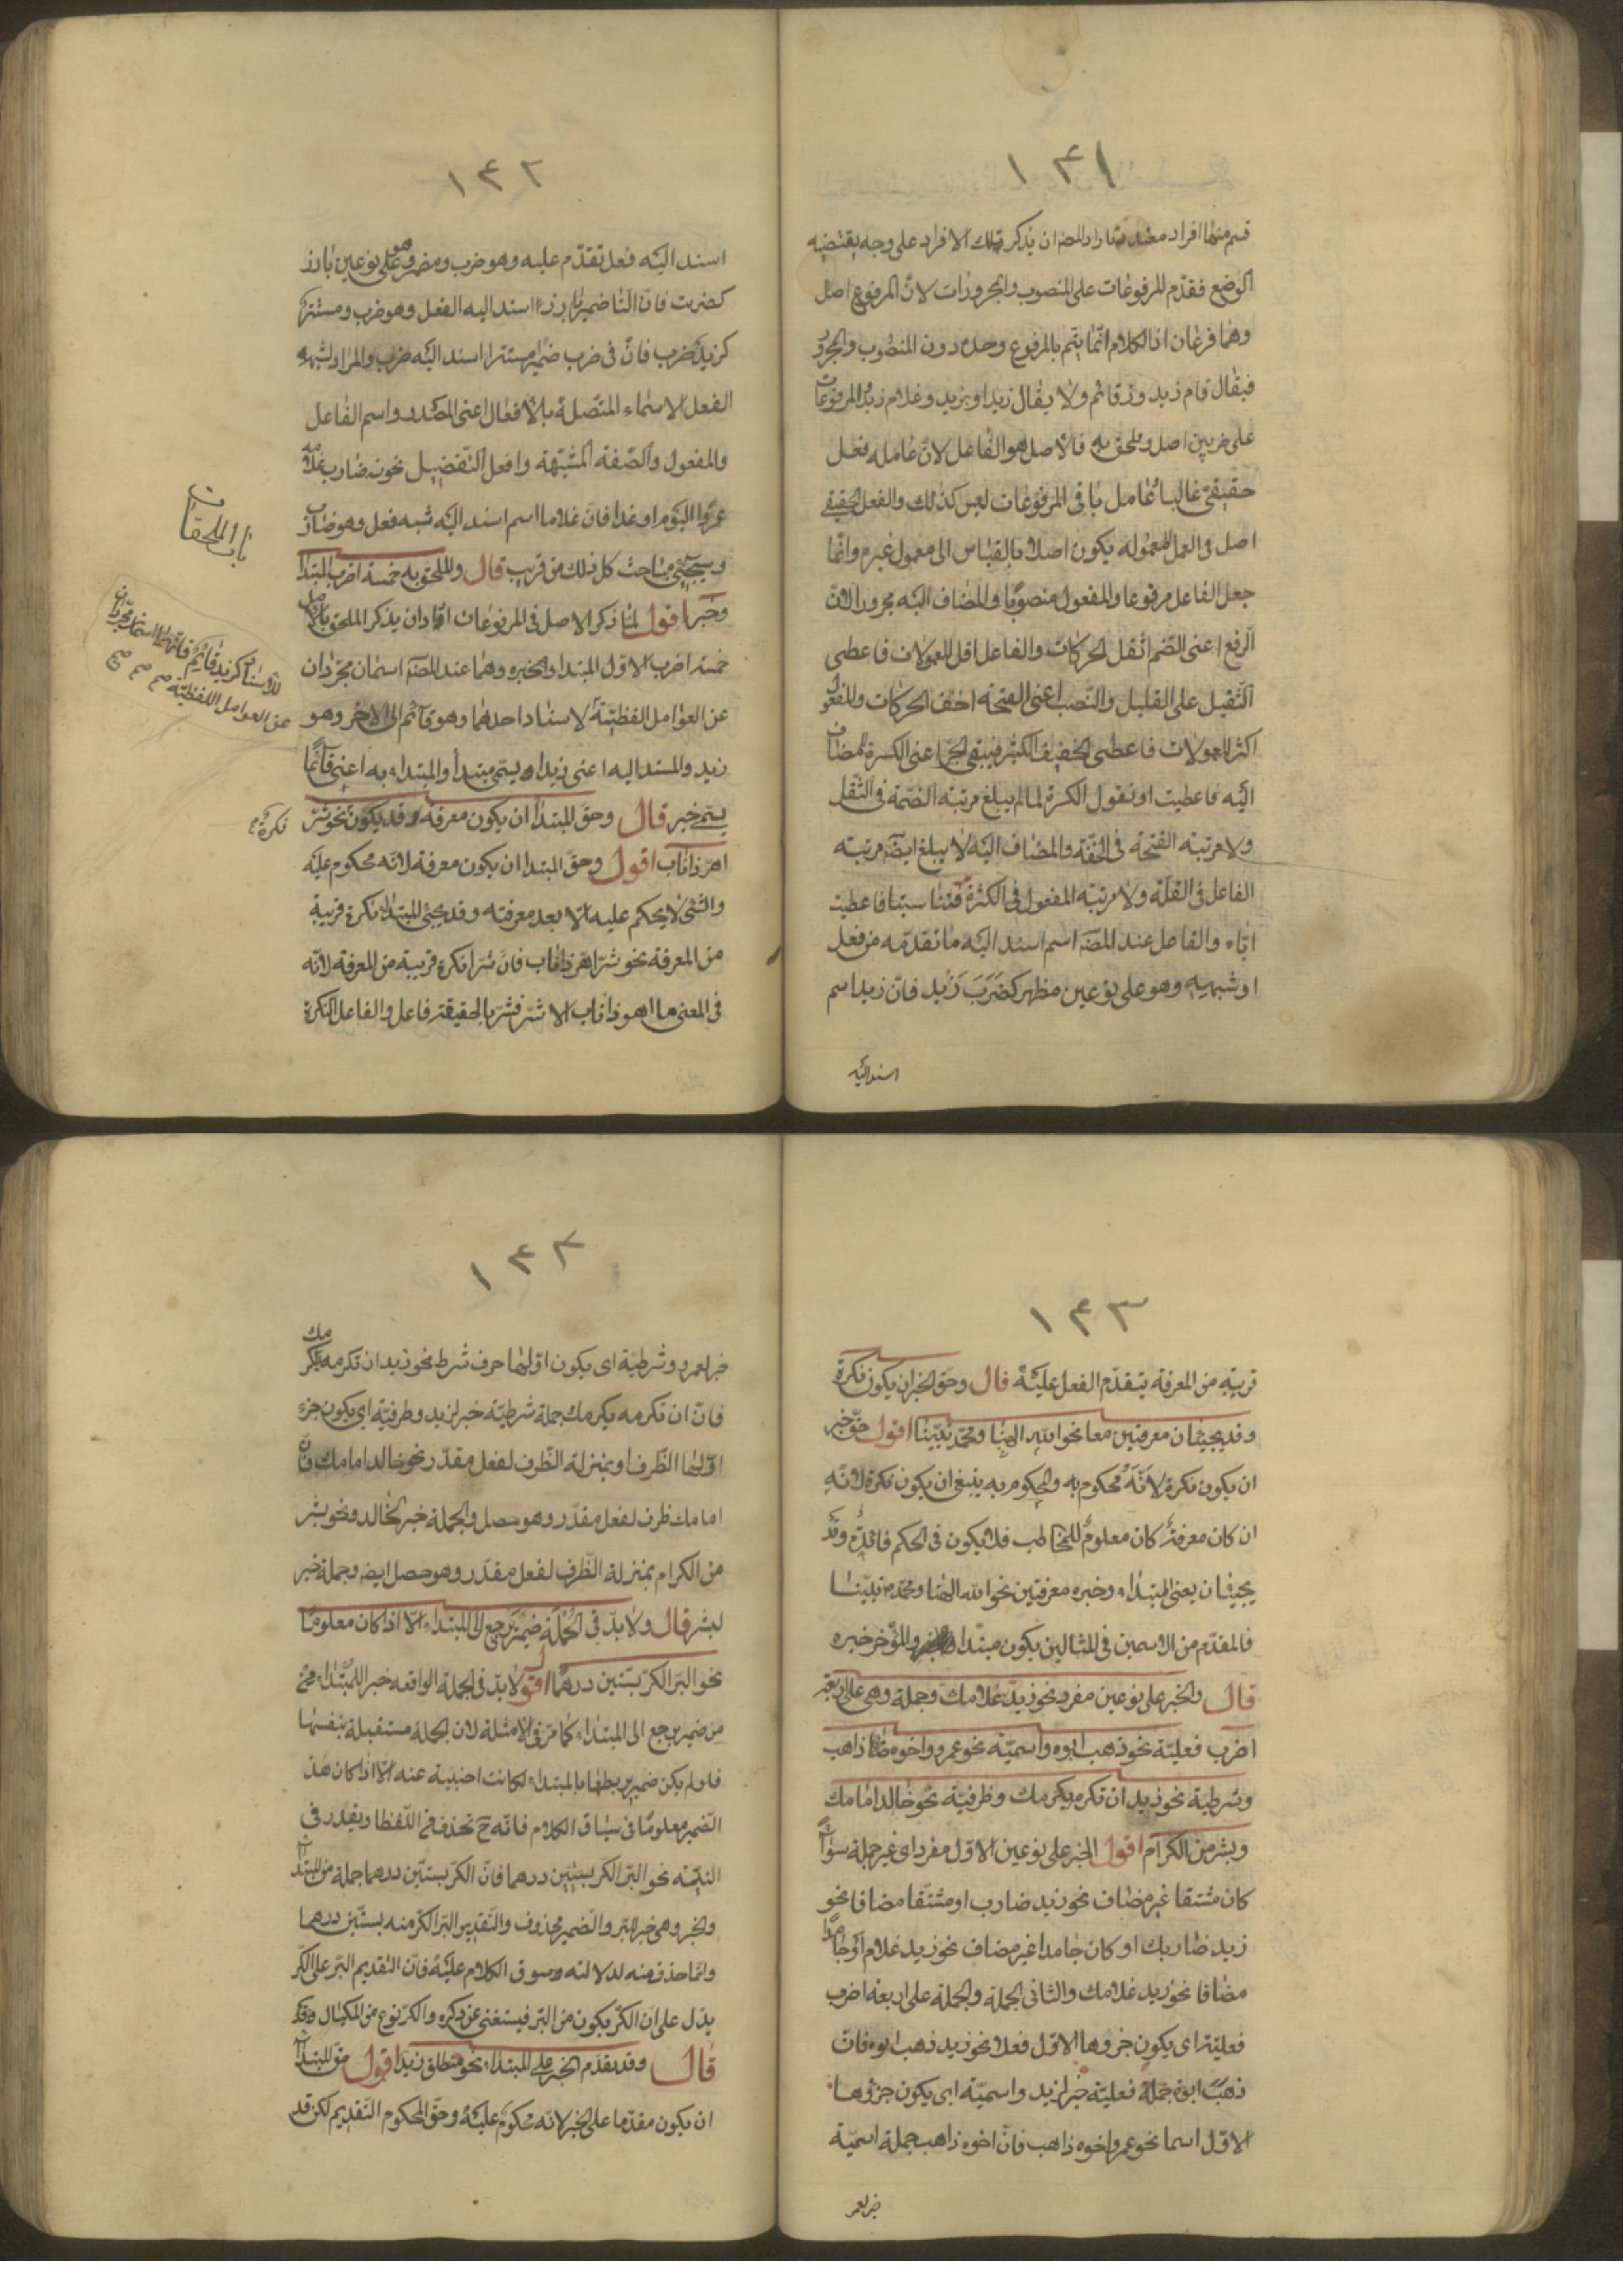 ١٤١
قسم منها افراد متعددة اراد المصـ ان يذكر تلك الافراد على وجه يقتضيه
الوضع فقدّم المرفوعات على المنصوب والمجرورات لانّ المرفوع اصل
وهما فرعان اذ الكلام انّما يتّم بالمرفوع وحده دون المنصوب والمجرور
فيقال قام زيد وزيد قائم ولا يقال زيدا وبزيد وغلام زيد والمرفوعات
على ضربين اصل وملحق به فالاصل هو الفاعل لانّ عامله فعل
حقيقىّ غالبا وعامل باقى المرفوعات ليس كذلك والفعل الحقيقى
اصل فى العمل فمعموله يكون اصلا بالقياس الى معمول غيره وانّما
جعل الفاعل مرفوعا والمفعول منصوبًا والمضاف اليه مجرورا لانّ
الرفع اعنى الضّم اثقل الحركات والفاعل اقل المعمولات فاعطى
الثّقيل على القليل والنّصب اعنى الفتحة اخف الحركات والمفعول
اكثر المعمولات فاعطى الخفيف الكثير فيبقى الجرّ اعنى الكسرة للمضاف
اليه فاعطيت او نقول الكسرة لما لم يبلغ مرتبة الضّمة فى الثّقل
ولا مرتبة الفتحة فى الخفّة والمضاف اليه لا يبلغ ايضا مرتبة
الفاعل فى القلّة ولا مرتبة المفعول فى الكثرة فتناسبتا فاعطيت
ايّاه والفاعل عند المصـ اسم اسند اليه ما تقدّمه من فعل
او شبهه وهو على نوعين مظهر كضَرَبَ زَيد فانّ زيدا اسم
اسند اليه
١٤٢
اسند اليه فعل تقدّم عليه وهو ضرب ومضمر وهو على نوعين بارز
كضربت فانّ التّا ضمير بارز اسند اليه الفعل وهو ضرب ومستتر
كزيد ضرب فانّ فى ضرب ضمير مستترا اسند اليه ضرب والمراد بشبه
الفعل الاسماء المتّصلة بالافعال اعنى المصدر واسم الفاعل
والمفعول والصّفة المشبّهة وافعل التفضيل نحو زيد ضارب غلامه
عمروا اليوم او غدا فانّ غلاما اسم اسند اليه شبه فعل وهو ضارب
وسيجئى مباحث كل ذلك من قريب قال والملحق به خمسة اضرب المبتدا
وخبر اقول لمّا ذكر الاصل فى المرفوعات اراد ان يذكر الملحق بالاصل
خمسة اضرب الاوّل المبتدا والخبر وهما عند المصـ اسمان مجرّدان
عن العوامل اللفظيّة لاسناد احدهما وهو قائم الى الاخر وهو
زيد والمسند اليه اعنى زيدا يسمّى مبتدأ والمبتداء به اعنى قائمًا
يسمّى خبر قال وحق المبتدا ان يكون معرفة وقد يكون نحو شرّ
اهرّ ذا ناب اقول وحقّ المبتدا ان يكون معرفة لانّه محكوم عليه
والشئ لا يحكم عليه الا بعد معرفته وقد يجئ المبتدا نكرة قريبة
من المعرفة نحو شرّ اهرّ ذا ناب فانّ شرّا نكرة قريبة من المعرفة لانّه
فى المعنى ما اهر ذا ناب الا شرّ فشرّ بالحقيقة فاعل والفاعل النكرة
باب الملحقات
للاسناد كزيد قائم فانّهما اسمان مجرّدان
عن العوامل اللفظيّة صح صح صح
نكرة صح
١٤٣
قريبة من المعرفة بتقدّم الفعل عليه قال وحق الخبر ان يكون نكرة
وقد يجيئان معرفتين معا نحو الله الهنا ومحمّد نبيّنا اقول حق خبر
ان يكون نكرة لانّه محكوم به والمحكوم به ينبغى ان يكون نكرة لانّه
ان كان معرفة كان معلومٌ للمخاطب فلا يكون فى الحكم فائدة وقد
يجيئان يعنى المبتداء وخبره معرفتين نحو الله الهنا ومحمّد نبيّنا
فالمقدّم من الاسمين فى المثالين يكون مبتدا والمؤخر خبره
قال والخبر على نوعين مفرد نحو زيد غلامك وجملة وهى على اربعة
اضرب فعليّة نحو ذهب ابوه واسميّة نحو عمرو واخوه ذاهب
وشرطية نحو زيد ان تكرمه يكرمك وظرفية نحو خالد امامك
وبشر من الكرام اقول الخبر على نوعين الاوّل مفرد اى غير جملة سواء
كان مشتقا غير مضاف نحو زيد ضارب او مشتقّا مضافا نحو
زيد ضاربك او كان جامدا غير مضاف نحو زيد غلام او جامدا
مضافا نحو زيد غلامك والثانى الجملة والجملة على اربعة اضرب
فعليّة اى يكون جزوها الاوّل فعلا نحو زيد ذهب ابوه فانّ
ذهب ابوه جملة فعليّة خبر لزيد واسميّة اى يكون جزؤها
الاوّل اسما نحو عمرو اخوه ذاهب فانّ اخوه ذاهب جملة اسميّة
خبر لعمرو
١٤٤
خبر لعمرو وشرطيّة اى يكون اوّلهما حرف شرط نحو زيد ان تكرمه يكرمك
فانّ ان تكرمه يكرمك جملة شرطيّة خبر لزيد وظرفيّة اى يكون جزء
اوّلهما الظّرف او بمنزلة الظّرف لفعل مقدّر نحو خالد امامك فانّ
امامك ظرف لفعل مقدّر وهو حصل والجملة خبر لخالد ونحو بشر
من الكرام بمنزلة الظّرف لفعل مقدّر وهو حصل ايضا وجملة خبر
لبشر قال ولا بدّ فى الجملة ضمير يرجع الى المبتداء الّا اذا كان معلومًا
نحو البرّ الكر بستّين درهمًا اقول لا بدّ فى الجملة الواقعه خبر اللمبتداء
من ضمير يرجع الى المبتداء كما مرّ فى الامثلة لان الجملة مستقلة بنفسها
فلو لم يكن ضمير يربطها بالمبتداء لكانت اجنبية عنه الّا اذا كان هذا
الضّمير معلومًا فى سياق الكلام فانّه ح تحذف فى اللّفظ ويقدر فى
النيّة نحو البرّ الكر بستّين درهما فانّ الكرّ بستّين درهما جملة من المبتدا
والخبر وهى خبر للبر والضّمير محذوف والتّقدير البر الكر منه بستّين درهما
وانّما حذف منه لدلالته وسوق الكلام عليه فانّ التقديم البرّ على الكرّ
يدّل على ان الكرّ يكون من البرّ فيستغنى عن ذكره والكر نوع من المكيال وقد
قال وقد يقدّم الخبر على المبتداء نحو منطلق زيد اقول حق المبتدا
ان يكون مقدّما على الخبر لانّه محكوم عليه وحقّ المحكوم التّقديم لكن قد